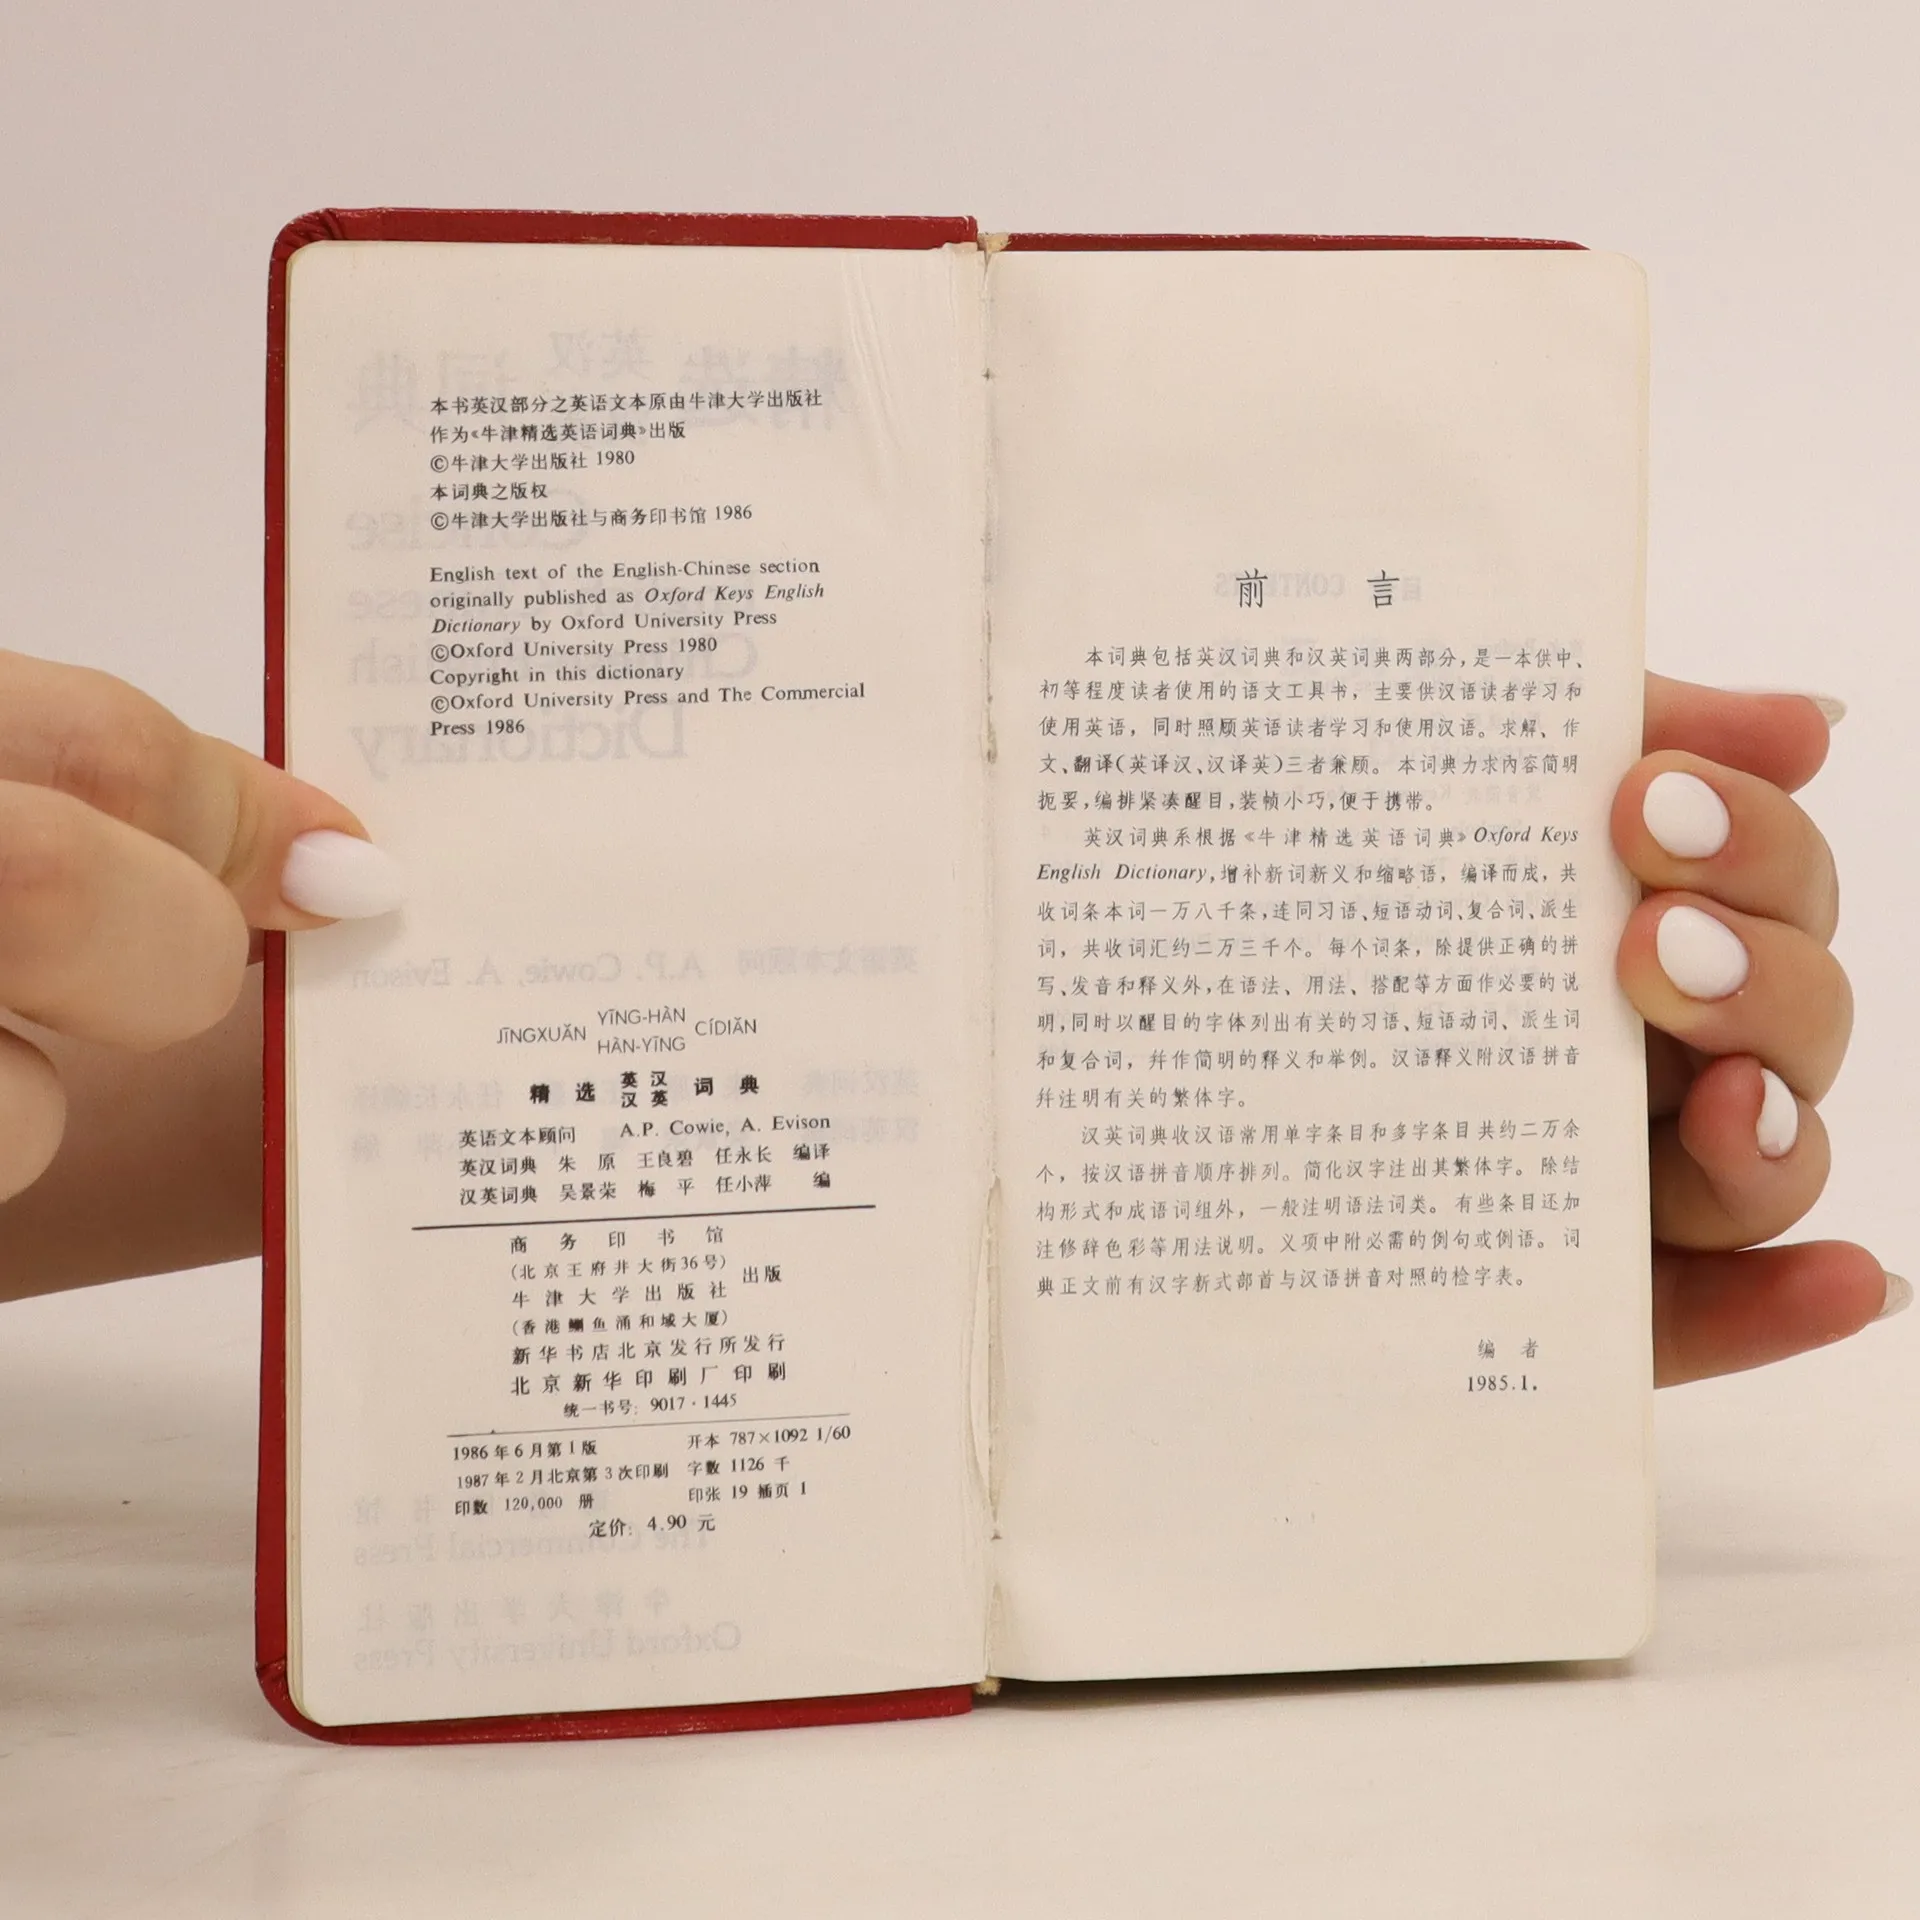 本书英汉部分之英语文本原由牛津大学出版社
作为《牛津精选英语词典》出版
©牛津大学出版社 1980
本词典之版权
©牛津大学出版社与商务印书馆 1986
English text of the English-Chinese section
originally published as Oxford Keys English
Dictionary by Oxford University Press
©Oxford University Press 1980
Copyright in this dictionary
©Oxford University Press and The Commercial
Press 1986
JĪNGXUǍN YĪNG-HÀN HÀN-YĪNG CÍDIǍN
精选 英汉 汉英 词典
英语文本顾问 A.P. Cowie, A. Evison
英汉词典 朱 原 王良碧 任永长 编译
汉英词典 吴景荣 梅 平 任小萍 编
商务印书馆
(北京王府井大街36号)
出版
牛津大学出版社
(香港鲗鱼涌和域大厦)
新华书店北京发行所发行
北京新华印刷厂印刷
统一书号: 9017·1445
1986年6月第1版 开本 787×1092 1/60
1987年2月北京第3次印刷 字数 1126 千
印数 120,000 册 印张 19 插页 1
定价: 4.90 元
前言
本词典包括英汉词典和汉英词典两部分,是一本供中、
初等程度读者使用的语文工具书，主要供汉语读者学习和
使用英语，同时照顾英语读者学习和使用汉语。求解、作
文、翻译(英译汉、汉译英)三者兼顾。本词典力求内容简明
扼要,编排紧凑醒目,装帧小巧,便于携带。
英汉词典系根据《牛津精选英语词典》Oxford Keys
English Dictionary,增补新词新义和缩略语，编译而成，共
收词条本词一万八千条,连同习语、短语动词、复合词、派生
词，共收词汇约二万三千个。每个词条，除提供正确的拼
写、发音和释义外,在语法、用法、搭配等方面作必要的说
明,同时以醒目的字体列出有关的习语、短语动词、派生词
和复合词，并作简明的释义和举例。汉语释义附汉语拼音
并注明有关的繁体字。
汉英词典收汉语常用单字条目和多字条目共约二万余
个，按汉语拼音顺序排列。简化汉字注出其繁体字。除结
构形式和成语词组外，一般注明语法词类。有些条目还加
注修辞色彩等用法说明。义项中附必需的例句或例语。词
典正文前有汉字新式部首与汉语拼音对照的检字表。
编者
1985.1.